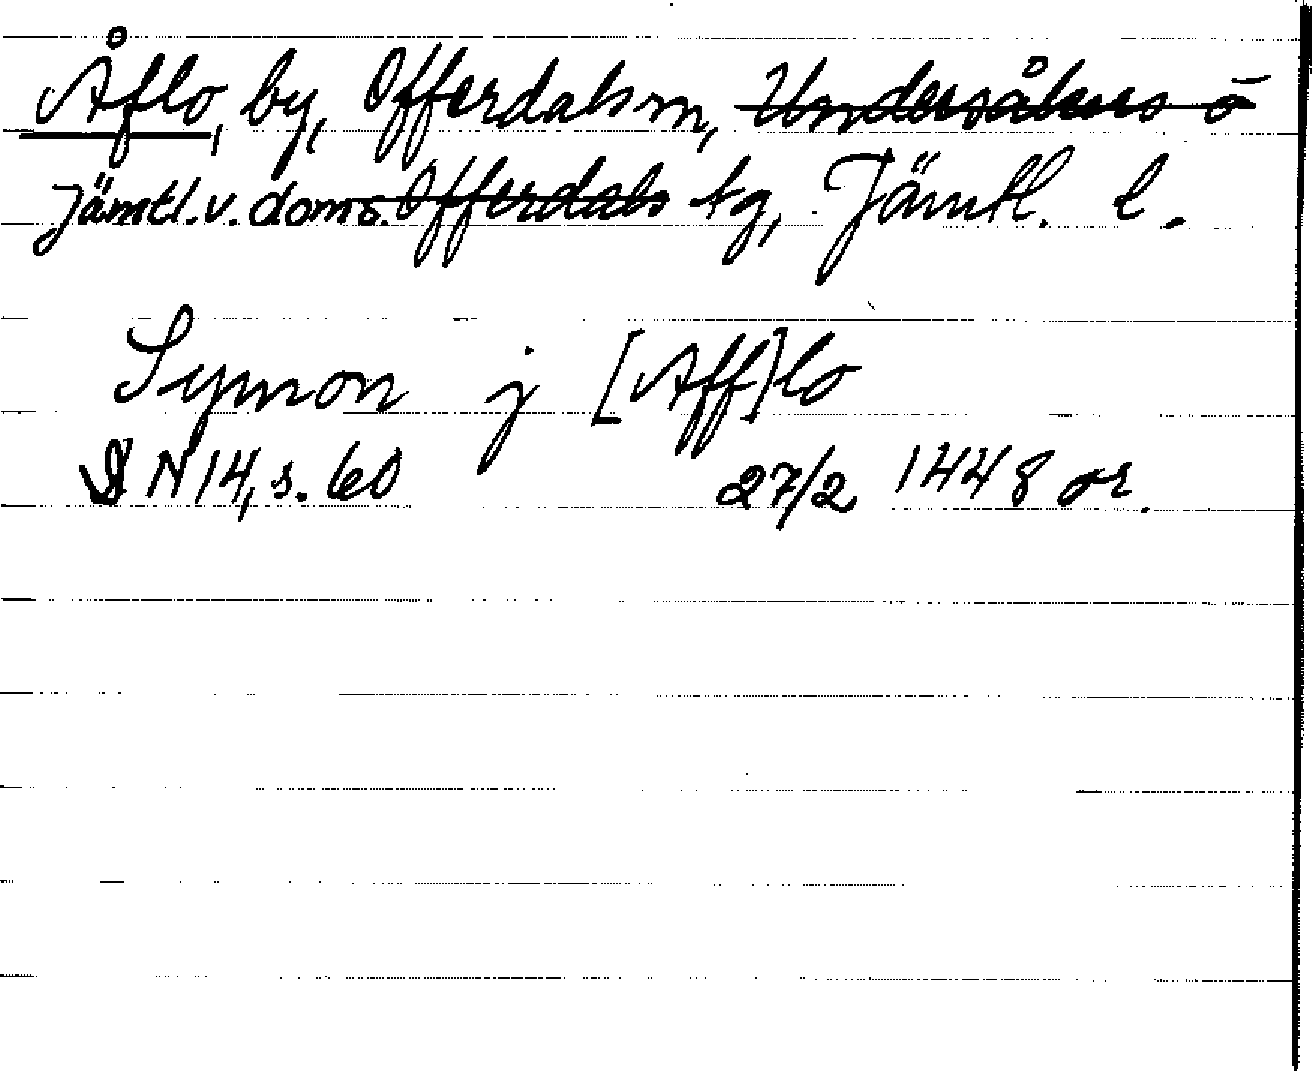 Åflo, by, Offerdals sn, Undersåkers o
Jämtl. v. doms. Offerdals tg, Jämtl. l.
Symon j [Aff]lo
DN 14, s. 60 27/2 1448 or.